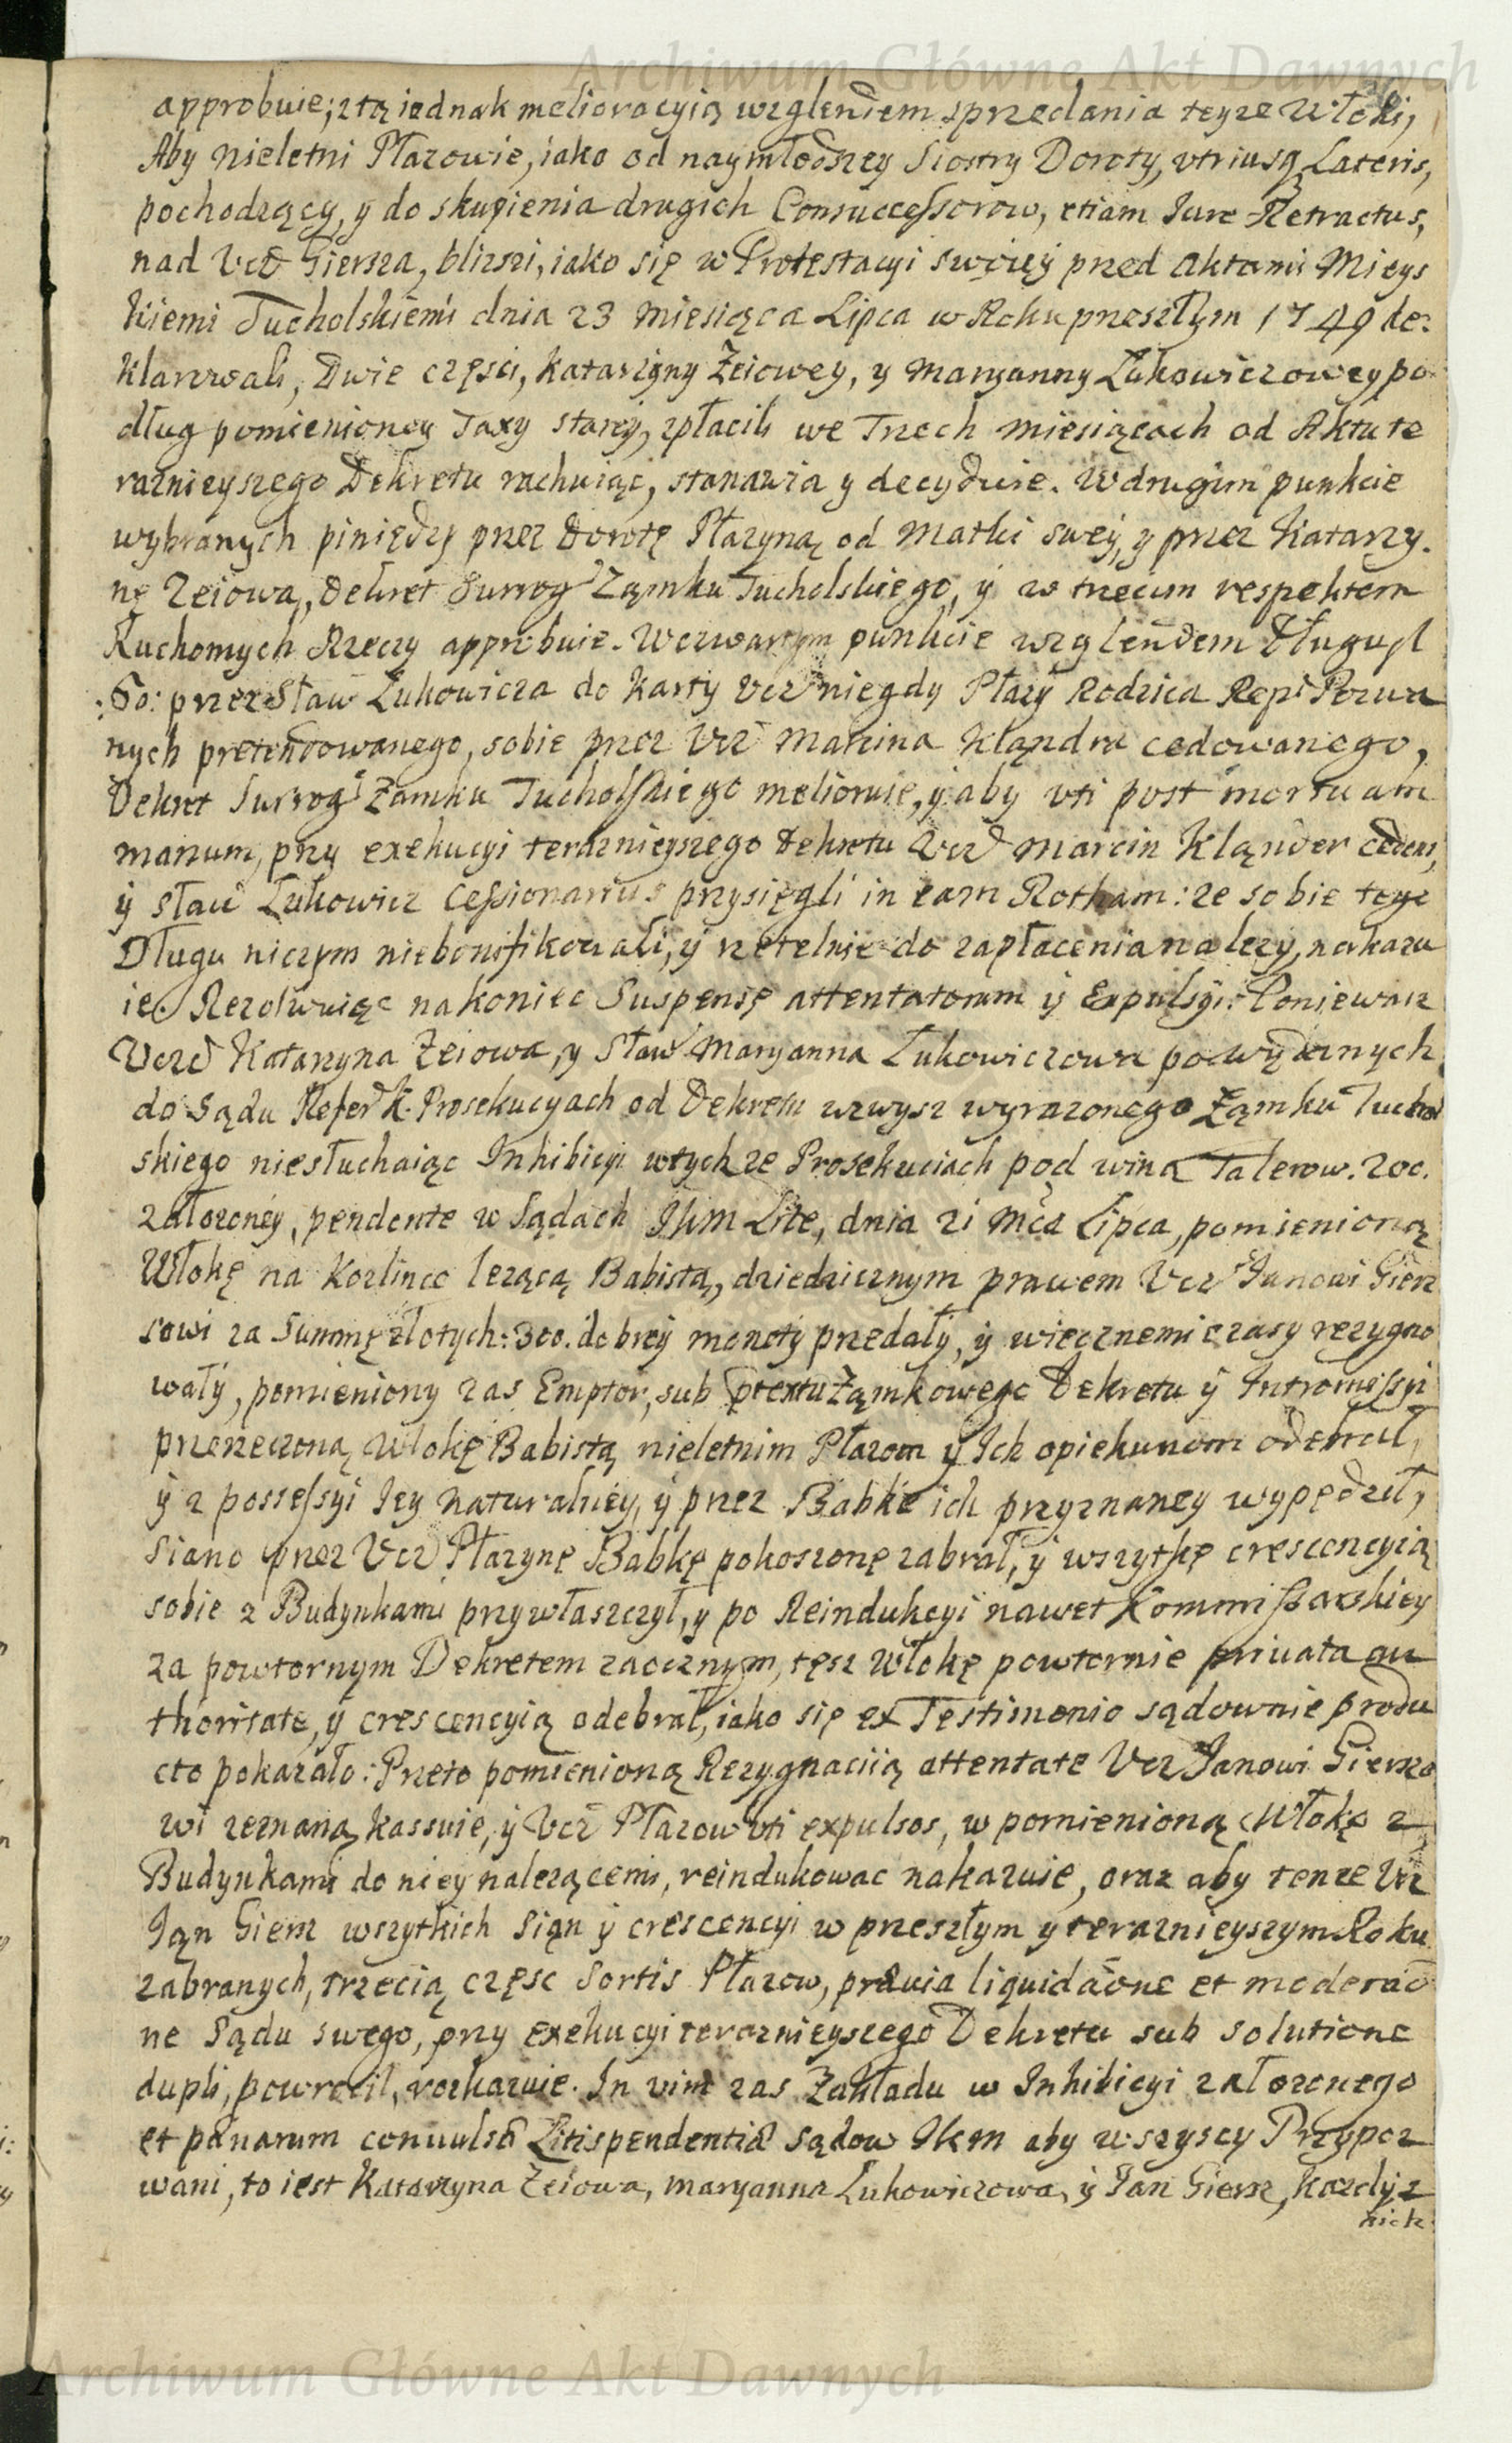 Archiwum Główne Akt Dawnych
approbuie; z tą iednak melioracyią wzglendem sprzedania teyze Włoki,
Aby nieletni Płazowie, iako od naymłodszey Siostry Doroty, utriusq Lateris,
pochodzący, y do skupienia drugich Consuccessorow, etiam Jure Retractus,
nad Ucz Giersza, blizsi, iako się w Protestacyi swoiey przed Aktami Mieys
kiemi Tucholskiemi dnia 23 Miesiąca Lipca w Roku preszłym 1749 de:
klarowali, Dwie części, Katarzyny Zeiowey, y Maryanny Lukowiczowey po
dług pomienioney Taxy starey, zpłacili we Trzech Miesiącach od Aktu te
raznieyszego Dekretu rachuiąc, stanawia y decyduie. W drugim punkcie
wybranych piniędzy przez Dorotę Płazyną od Matki swey, y przez Katarzy.
nę Zeiową, Dekret Surrog Ząmku Tucholskiego, y w trzecim respektem
Ruchomych Rzeczy approbuie. W czwartym punkcie wzglendem Długu fl
:60: przez Sław Lukowicza do Karty Ucz niegdy Płazy Rodzica Repi Pozwa
nych pretendowanego, sobie przez Ucz Marcina Kląndra cedowanego,
Dekret Surrog Zamku Tucholskiego melioruie, y aby uti post mortuam
manum, przy exekucyi teraznieyszego Dekretu Ucz Marcin Kląnder cedens,
y Sław Lukowicz Cessionarius przysięgli in eam Rotham: ze sobie tego
Długu niczym niebonifikowali, y rzetelnie do zapłacenia nalezy, nakazu
ie. Rezolwuiąc nakoniec Suspensę attentatorum y Expulsyi: Poniewasz
Ucz Katarzyna Zeiowa, y Sław Maryanna Lukowiczowa po wydanych
do Sądu Refer K. Prosekucyach od Dekretu wzwysz wyrazonego Ząmku Tuchol
skiego niesłuchaiąc Inhibicyi wtychze Prosekuciach pod winą Talerow. 200.
załozoney, pendente w Sądach JKM Lite, dnia 21 Mca Lipca, pomienioną
Włokę na Kozlince lezącą Babistą, dziedzicznym prawem Ucz Janowi Giersz
sowi za Summę złotych: 300. dobrey monety przedały, y wiecznemi czasy rezygno
wały, pomieniony zas Emptor, sub prextu Ząmkowego Dekretu y Intromissyi
przerzeczoną Włokę Babistą nieletnim Płazom y Ich opiekunom odebrał,
y z possessyi Jey naturalney, y przez Babkę ich przyznaney wypędził,
Siano przez Ucz Płazynę Babkę pokoszonę zabrał, y wszytkę crescencyią
sobie z Budynkami przywłaszczył, y po Reindukcyi nawet Kommissarskiey
za powtornym Dekretem zaocznym, tęsz Włokę powtornie privata au
thoritate, y crescencyią odebrał, iako się ex Testimonio sądownie produ
cto pokazało: Przeto pomienioną Rezygnaciią attentate Ucz Janowi Gierszo
wi zeznaną kassuie, y Ucz Płazow uti expulsos, w pomienioną Włokę z
Budynkami do niey nalezącemi, reindukowac nakazuie, oraz aby tenze Ucz
Jąn Giersz wszytkich Siąn y crescencyi w preszłym y teraznieyszym Roku
zabranych, trzecią częsc Sortis Płazow, prævia liquidaone et moderao
ne Sądu swego, przy exekucyi teraznieyszego Dekretu sub solutione
dupli, powrocił, rozkazuie. In vim zas Zakładu w Inhibicyi załozonego
et pænarum convulsæ Litispendentiæ Sądow JKM aby wszyscy Przypoz
wani, to iest Katarzyna Zeiowa, Maryanna Lukowiczowa, y Jan Giersz, kazdy z
nich
Archiwum Główne Akt Dawnych